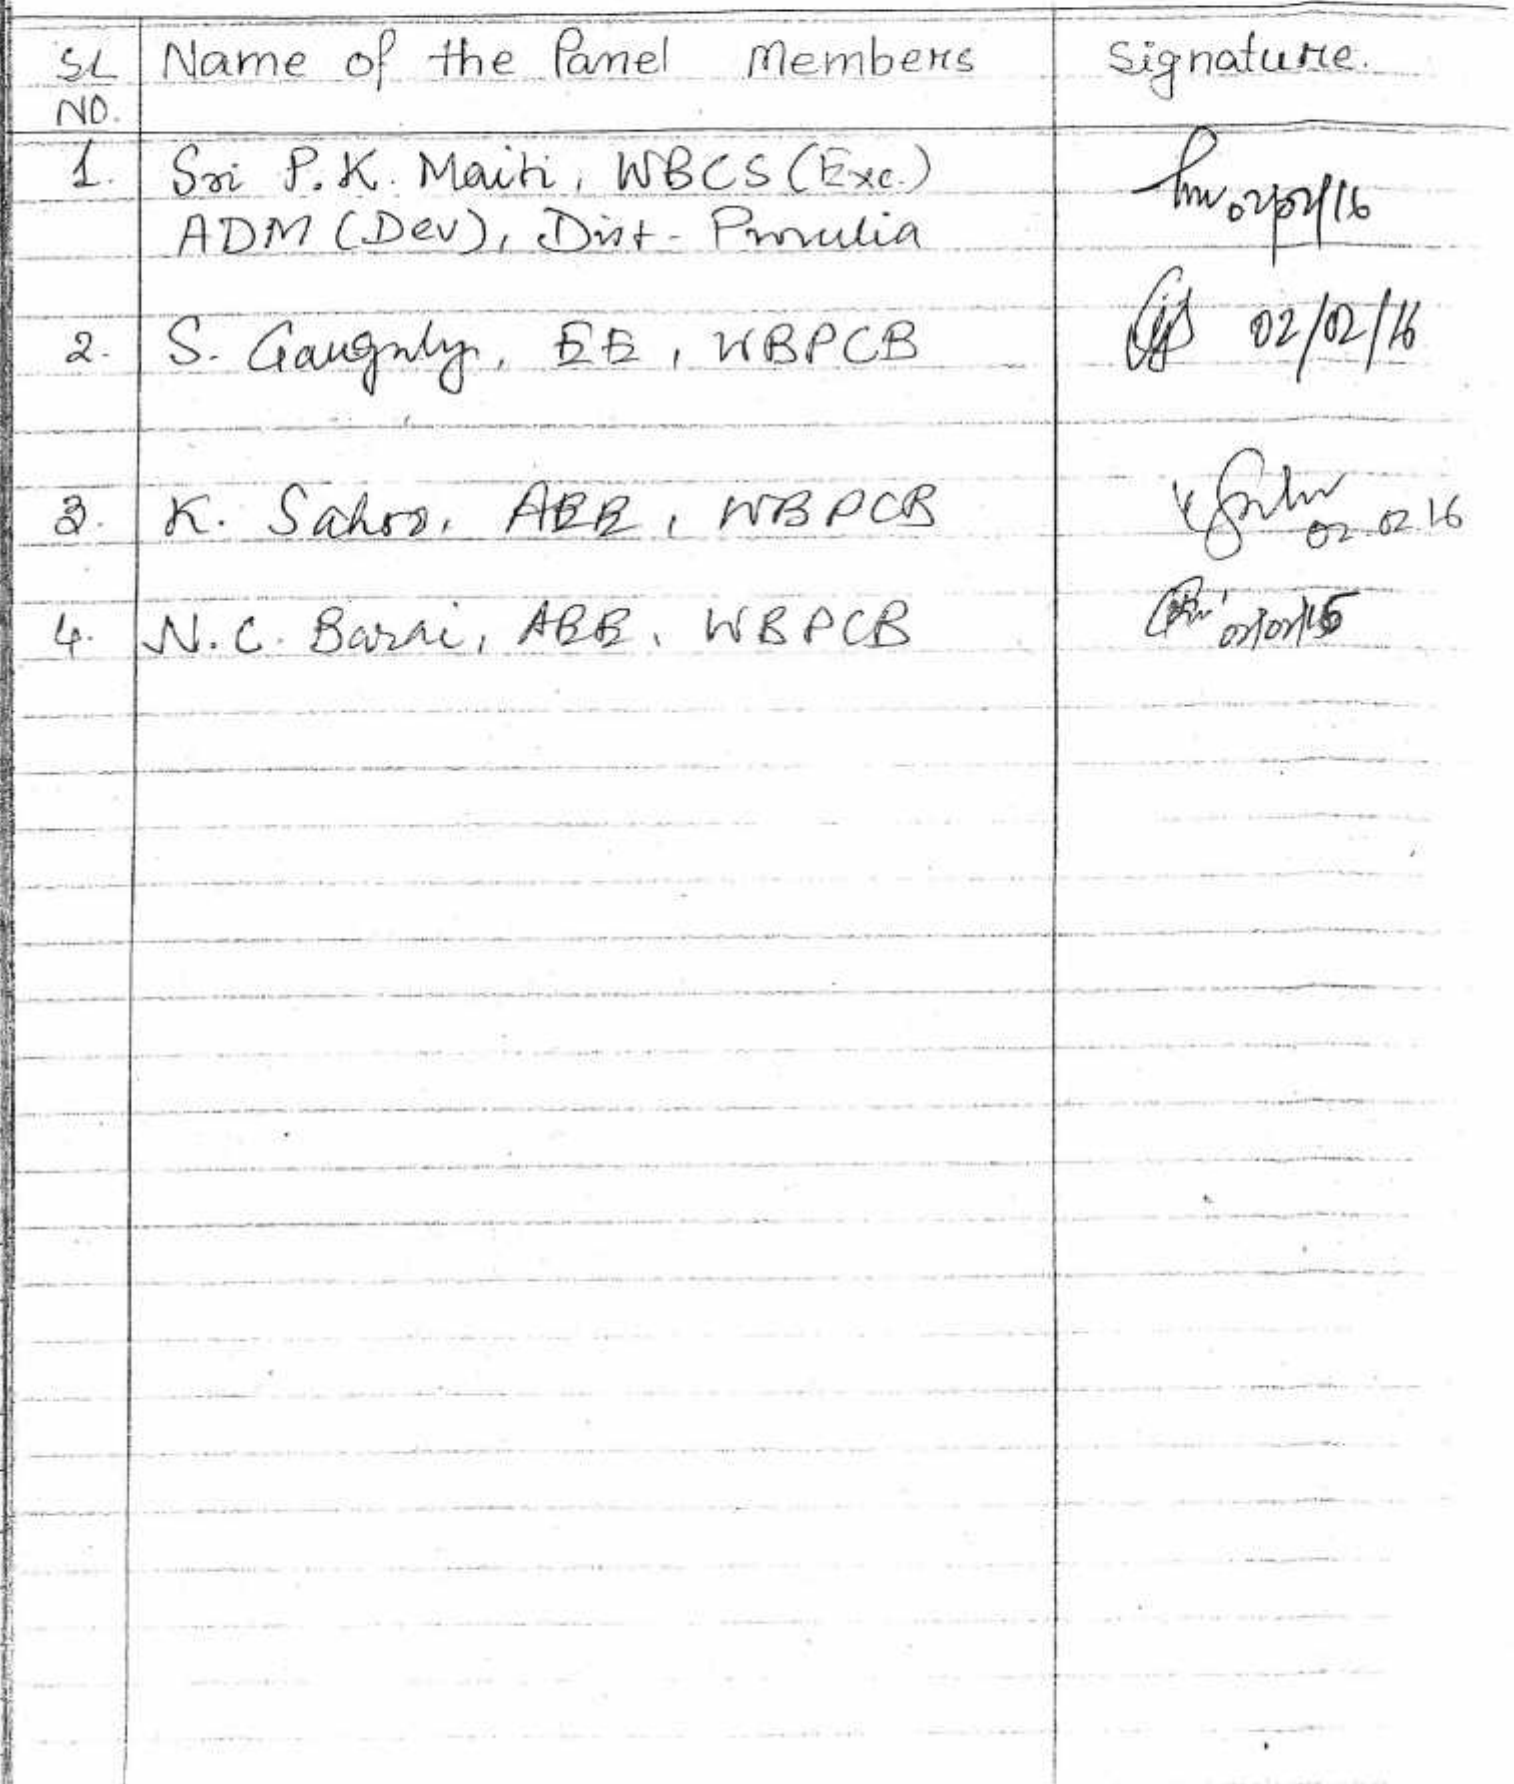 SL Name of the Panel Members Signature.
NO.
1. Sri P.K. Maiti, WBCS (Exc.)
ADM (Dev), Dist- Purulia 02/02/16
2. S. Ganguly, EE, WBPCB 02/02/16
3. K. Sahoo, AEE, WBPCB 02.02.16
4. N.C. Barai, AEE, WBPCB 02/02/16